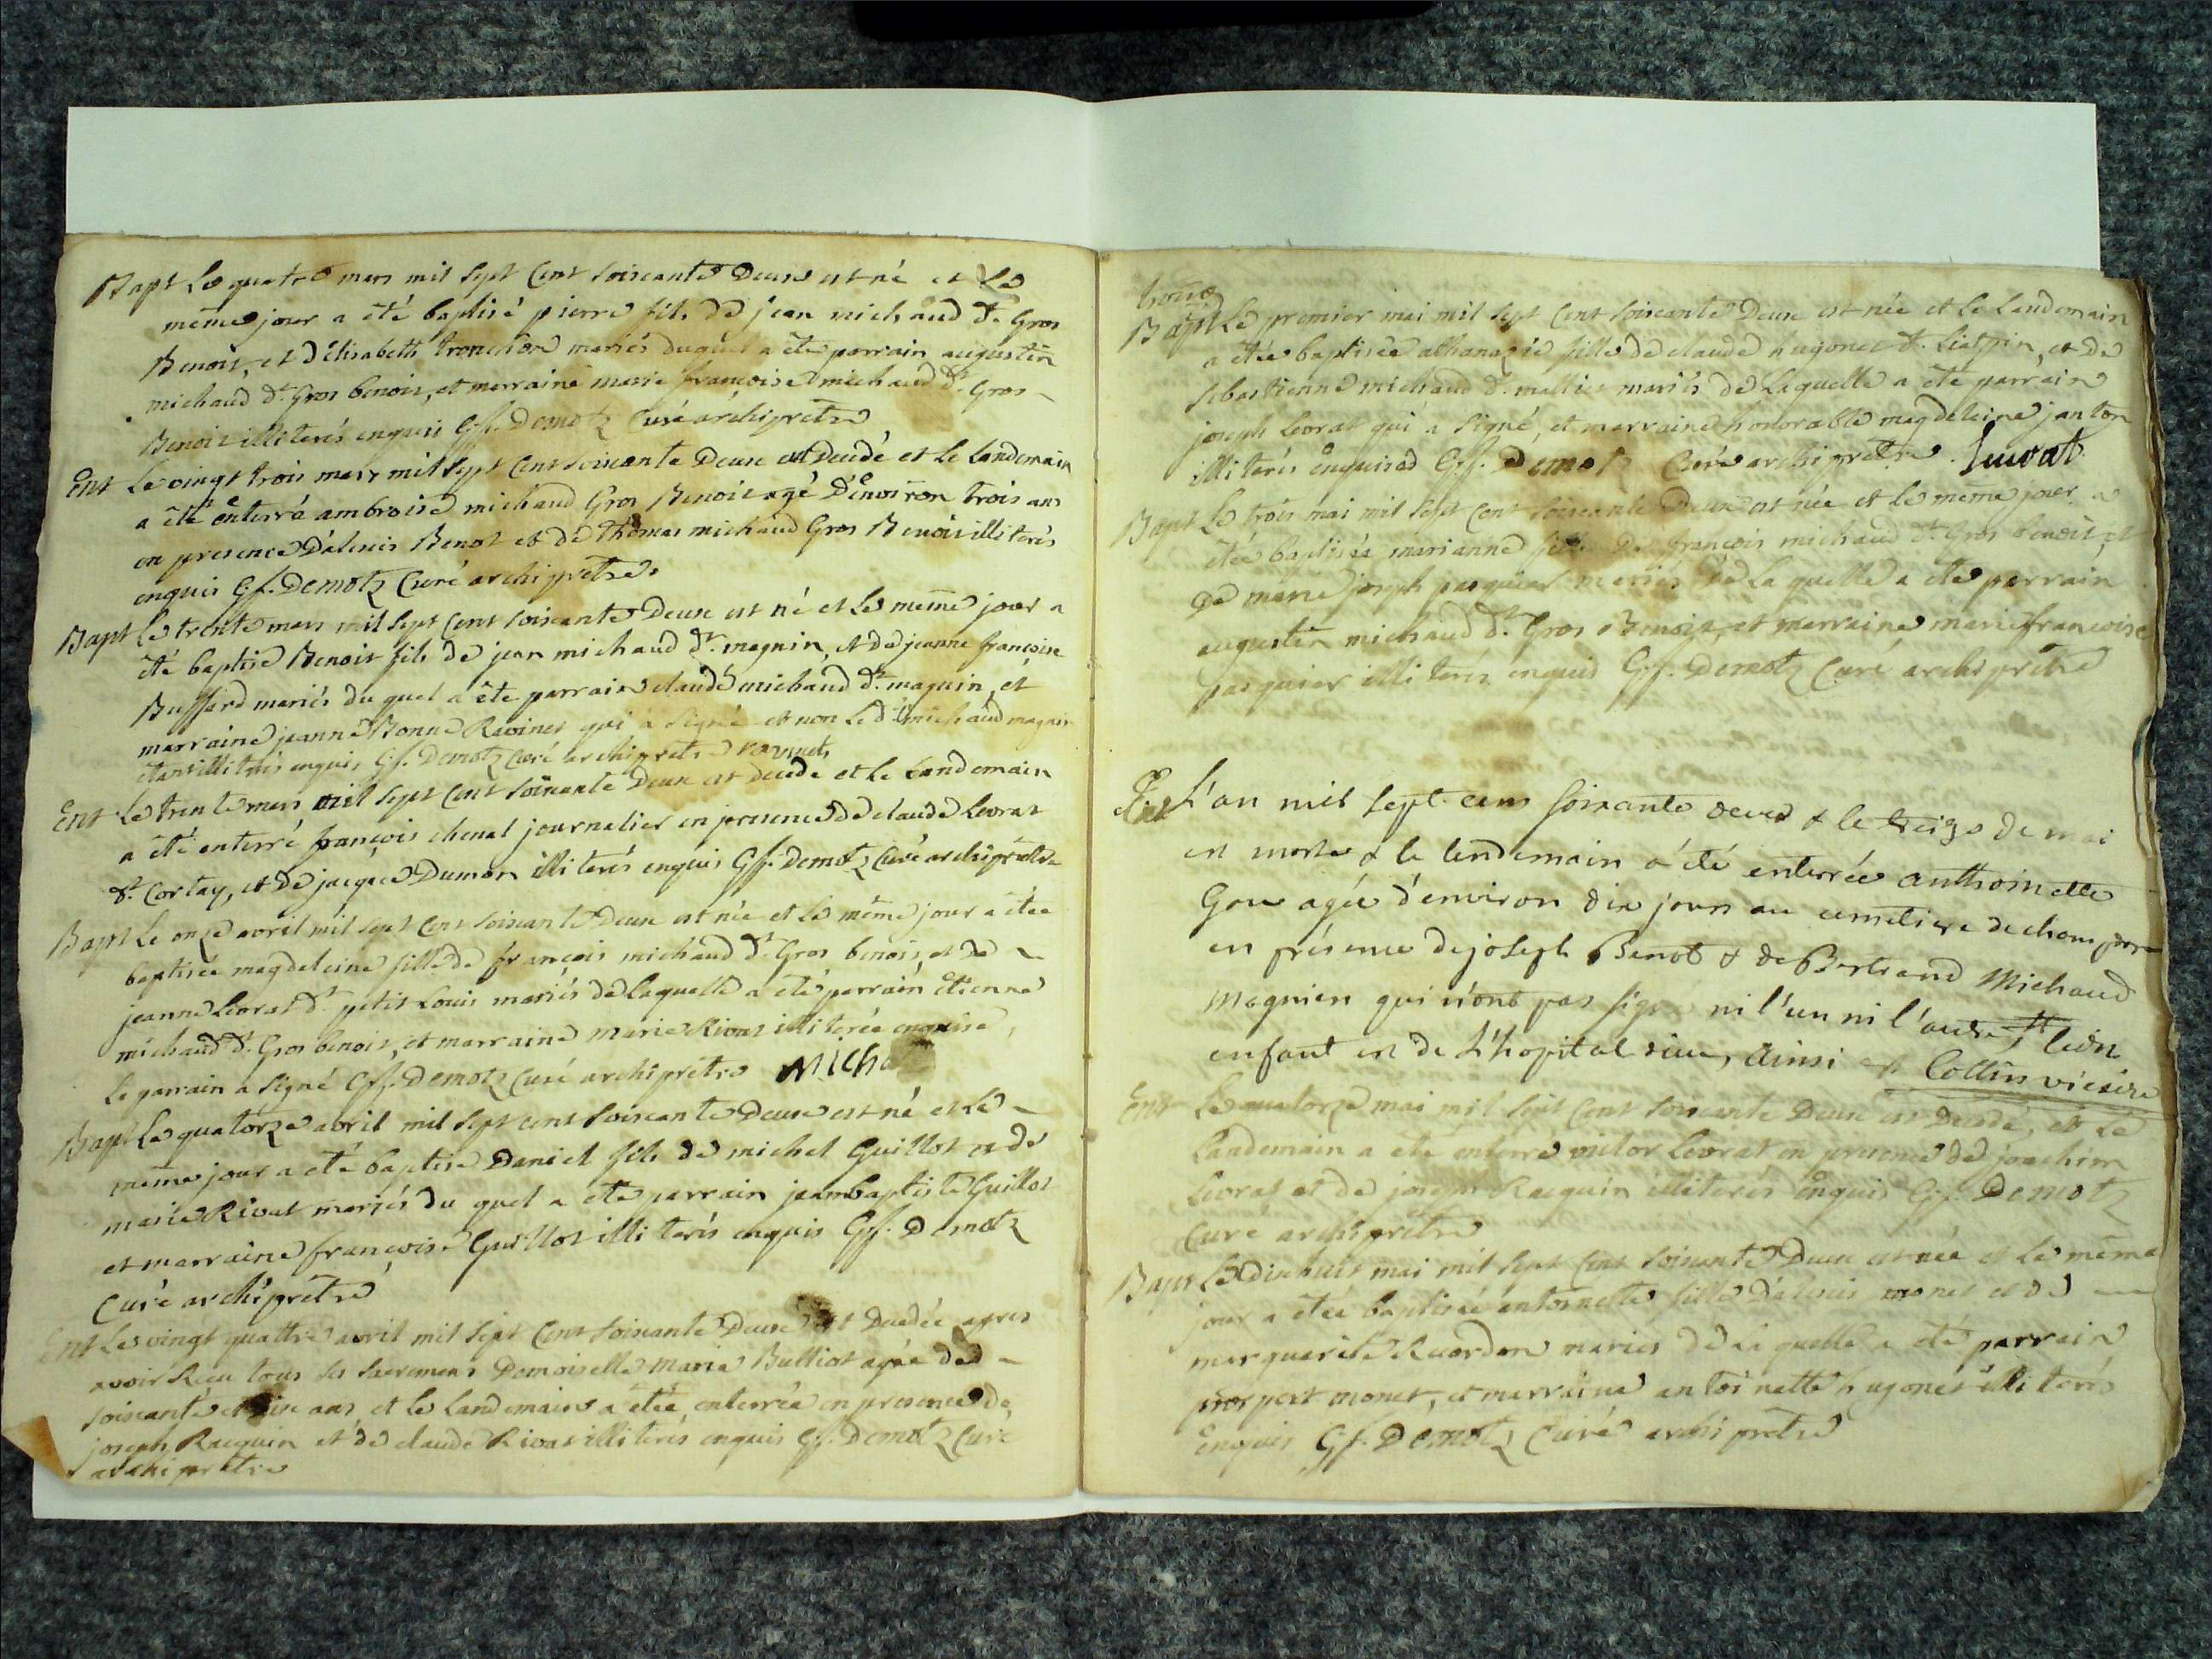 Bapt Le quatre mars mil sept cent soixante Deux est né et Le
même jour a été baptisé pierre fils de jean michaud dt. Gros
Benoit, et d'élisabeth tronchon mariés duquel a été parrain augustin
michaud dt. Gros benoit, et marraine marie françoise michaud dt. Gros
Benoit illiterés enquis Gf. Demotz Curé archiprêtre
Ent Le vingt trois mars mil sept cent soixante Deux est decédé et le landemain
a été enterré ambroise michaud Gros Benoit agé d'environ trois ans
en presence d'alexis Benot et de thomas michaud Gros Benoit illiterés
enquis Gf. Demotz Curé archiprêtre
Bapt Le trente mars mil sept cent soixante Deux est né et le même jour a
été baptisé Benoit fils de jean michaud dt. magnin, et de jeanne françoise
Buffard mariés du quel a été parrain claude michaud dt. magnin, et
marraine jeanne Bonne Ravinet qui a signé et non le dt. michaud magnin
étant illiterés enquis Gf. Demotz Curé archiprêtre ravinet
Ent Le trente mars mil sept cent soixante Deux est decédé et le landemain
a été enterré françois chenal journalier en presence de claude Levrat
dt. Cortay, et de jacque Dumon illiterés enquis Gf. Demotz Curé archiprêtre
Bapt Le onze avril mil sept cent soixante Deux est née et le même jour a étée
baptisée magdeleine fille de françois michaud dt. Gros benoit, et de
jeanne Levrat dt. petit Louis mariés de laquelle a été parrain étienne
michaud dt. Gros benoit, et marraine marie Rivat illiterée enquise,
le parrain a signé Gf. Demotz Curé archiprêtre Mich
Bapt Le quatorze avril mil sept cent soixante Deux est né et le
même jour a été baptisé Daniel fils de michel Guillot et de
marie Rivat mariés du quel a été parrain jeanbaptiste Guillot
et marraine françoise Guillot illiterés enquis Gf. Demotz
Curé archiprêtre
Ent Le vingt quattre avril mil sept cent soixante Deux est decédée apres
avoir Recu tous les sacremens Demoiselle marie Bulliot agée de
soixante et dix ans, et le landemain a étée enterrée en presence de
joseph Racquin et de claude Rivat illiterés enquis Gf. Demotz Curé
archiprêtre
trois
Bapt Le premier mai mil sept cent soixante Deux est née et le landemain
a étée baptisée athanazie fille de claude hugonet dt. , et de
sebastienne michaud dt. mariés de laquelle a été parrain
joseph Levrat qui a signé, et marraine honorable magdeleine janton
illiterés enquised Gf. Demotz Curé archiprêtre. Leuvrat
Bapt Le trois mai mil sept cent soixante Deux est née et le même jour a
étée baptisée marianne fille de françois michaud dt. Gros benoit, et
de marie joseph pasquier mariés de la quelle a été parrain
augustin michaud dt. Gros Benoit, et marraine marie françoise
pasquier illiterés enquis Gf. Demotz Curé archiprêtre
Ent L'an mil sept cens soixante deux & le treize de mai
est morte & le lendemain a été enterrée anthoinette
Gou agée d'environ dix jours au cemetiere de
en présence de joseph Benot & de Bertrand Michaud
magnien qui n'ont pas signé ni l'un ni l'autre,
enfant est de L'hopital ainsi est Collin vicaire
Ent Le quatorze mai mil sept cent soixante Deux est decédé, et le
landemain a été enterré victor Levrat en presence de joachim
Levrat et de joseph Racquin illiterés enquis Gf. Demotz
Curé archiprêtre
Bapt Le dixhuit mai mil sept cent soixante Deux est née et le même
jour a étée baptisée antoinette fille d'alexis monet et de
marguerite Reverdon mariés de la quelle a été parrain
prospert monet, et marraine antoinette hugonet illiterés
Enquis Gf. Demotz Curé archiprêtre